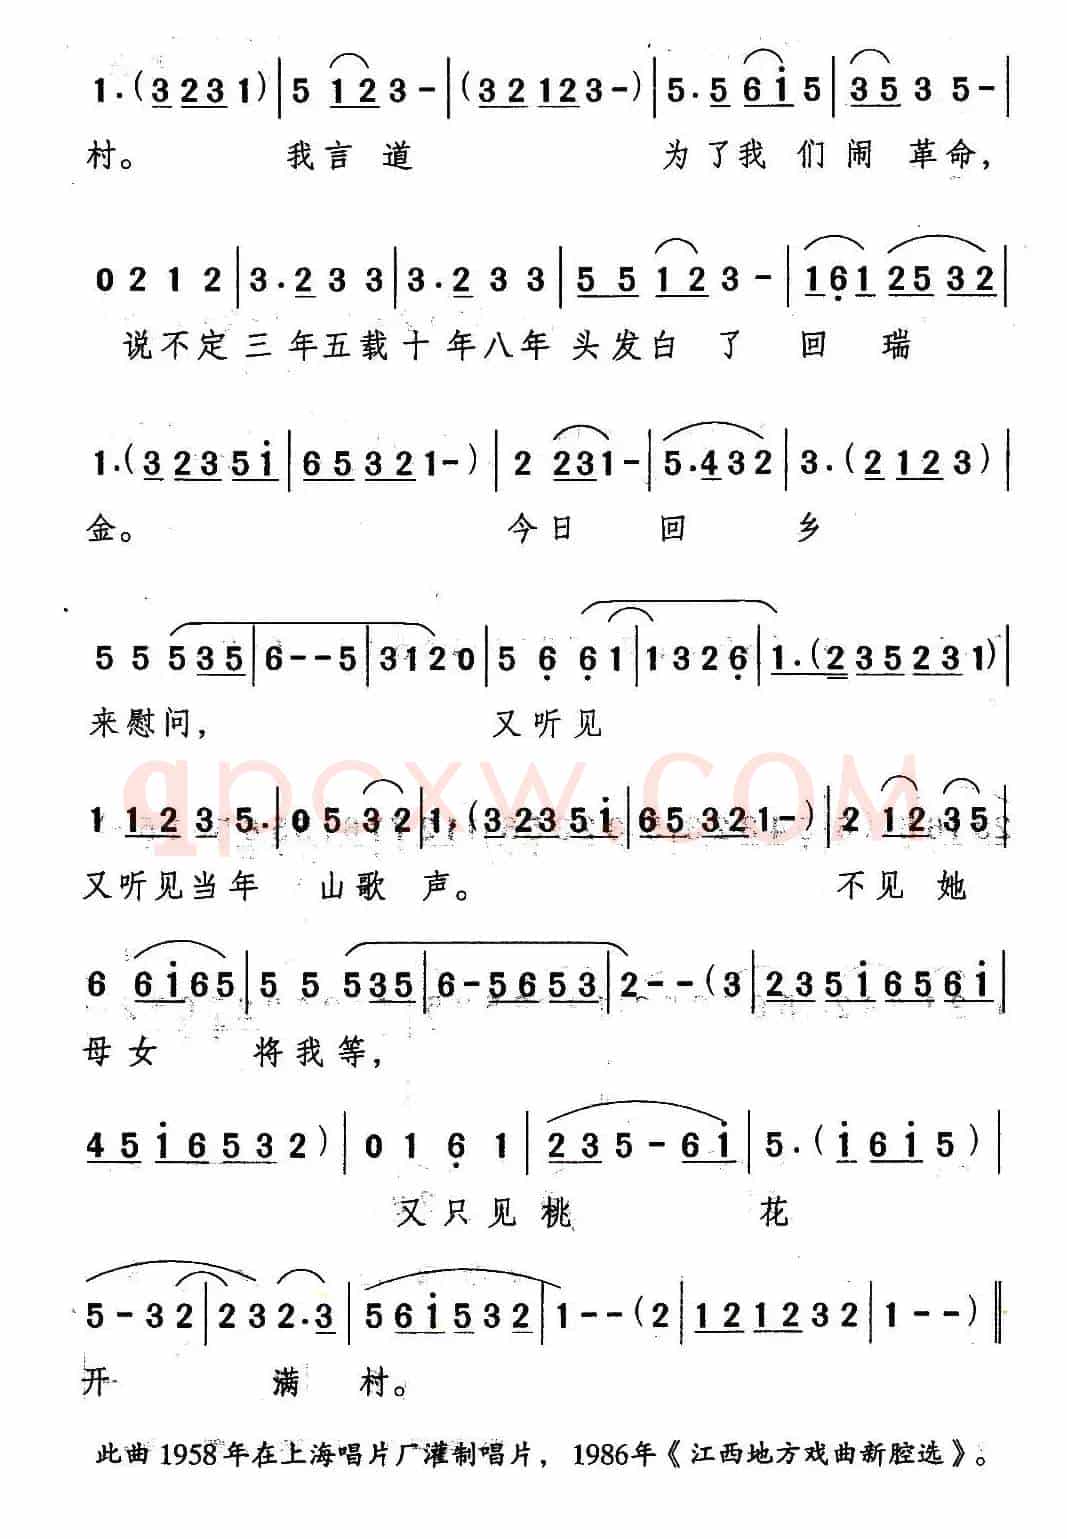 1.(3231)|5 123-|(32123-)|5.56i5|3535-|
村。 我言道 为了我们闹革命,
0212|3.233|3.233|55123-|1612532|
说不定三年五载十年八年头发白了回瑞
1.(3235i|65321-)|2231-|5.432|3.(2123)|
金。 今日回乡
55535|6--5|3120|5661|1326|1.(235231)|
来慰问, 又听见
qpcxw.COM
11235.|0532|1,(3235i|65321-)|21235|
又听见当年山歌声。 不见她
66i65|55535|6-5653|2--(3|235i656i|
母女将我等,
45i6532)|0161|235-6i|5.(i6i5)|
又只见桃花
5-32|232.3|56i532|1--(2|121232|1--)‖
开满村。
此曲1958年在上海唱片厂灌制唱片，1986年《江西地方戏曲新腔选》。